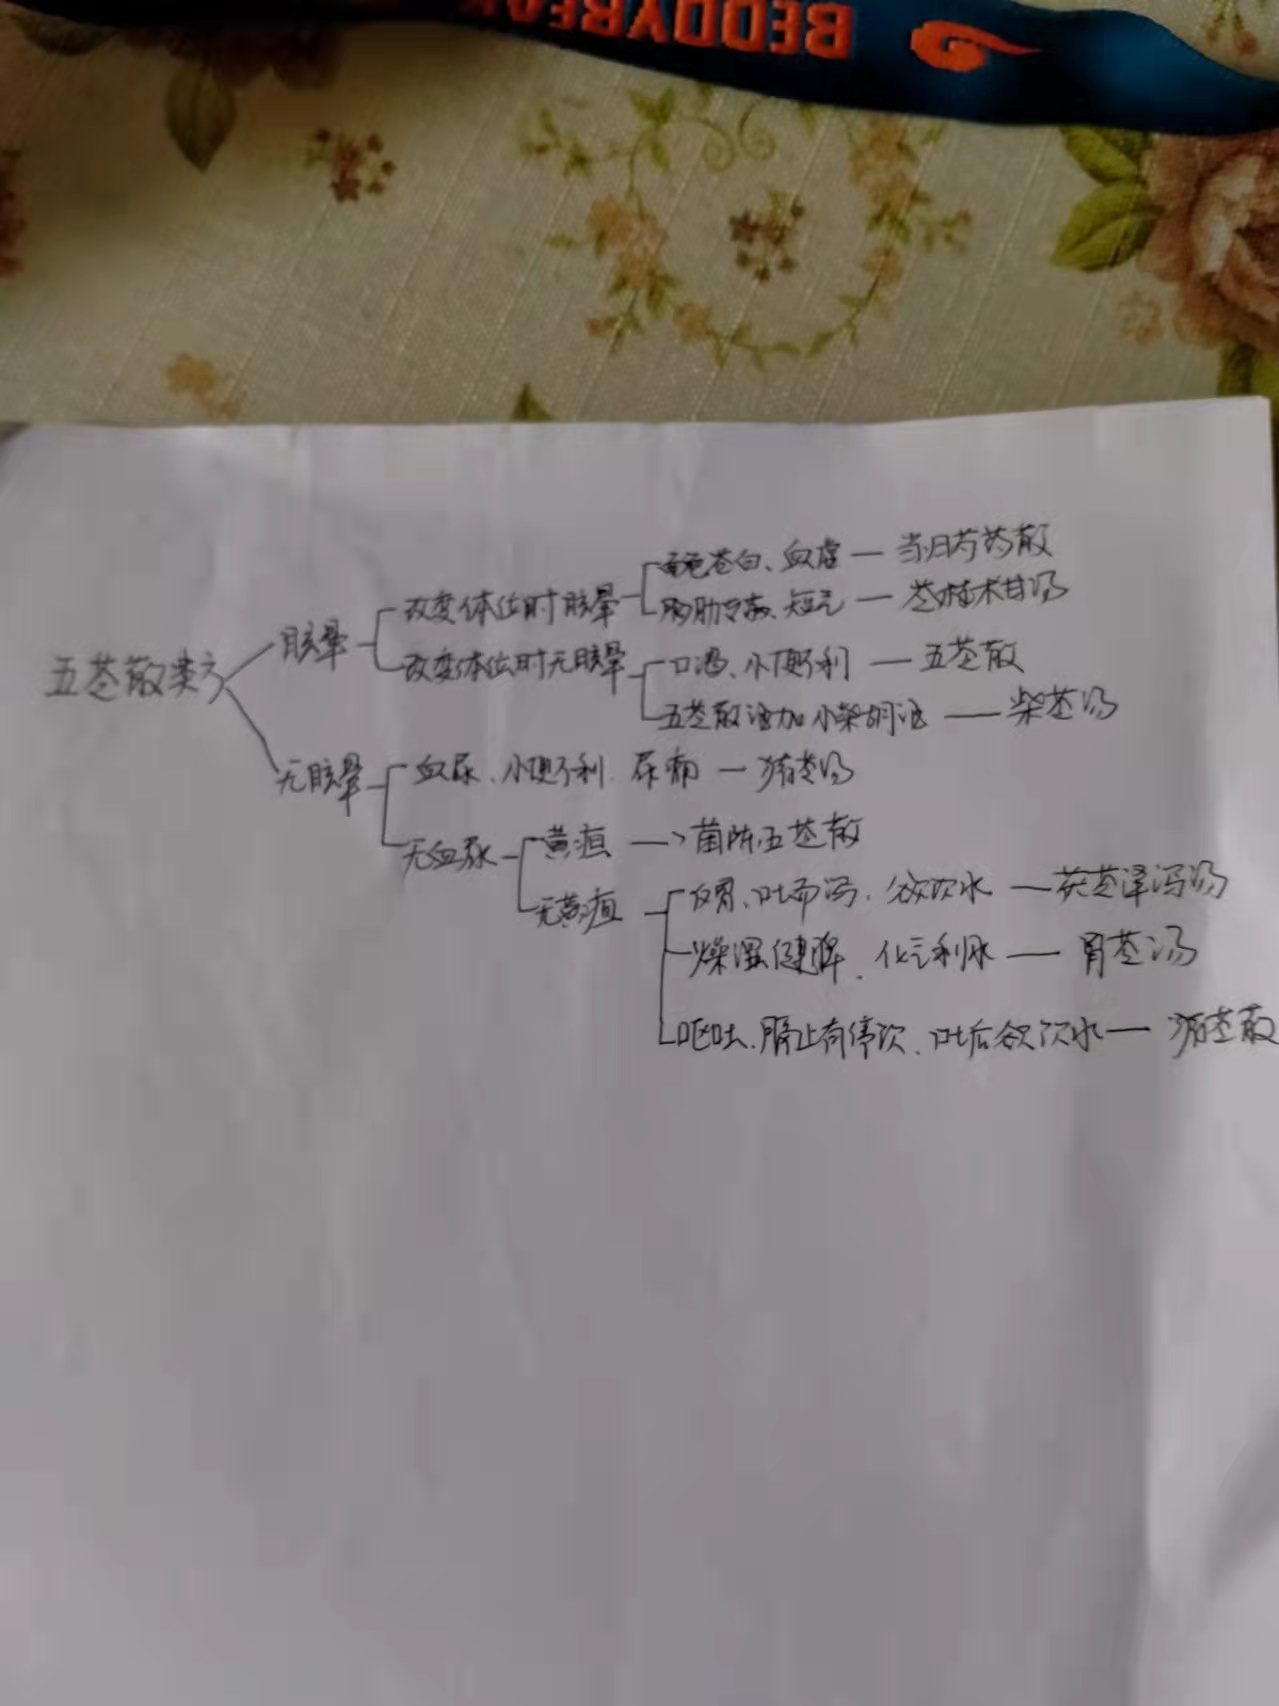 BEDDYBEAR
面色苍白、血虚 — 当归芍药散
改变体位时眩晕
胸胁支满、短气 — 苓桂术甘汤
眩晕
五苓散类方
改变体位时无眩晕
口渴、小便不利 — 五苓散
五苓散证加小柴胡证 — 柴苓汤
无眩晕
血尿、小便不利、尿痛 — 猪苓汤
无血尿
黄疸 → 茵陈五苓散
无黄疸
反胃、吐而渴、欲饮水 — 茯苓泽泻汤
燥湿健脾、化气利水 — 胃苓汤
呕吐、膈上有停饮、吐后欲饮水 — 猪苓散